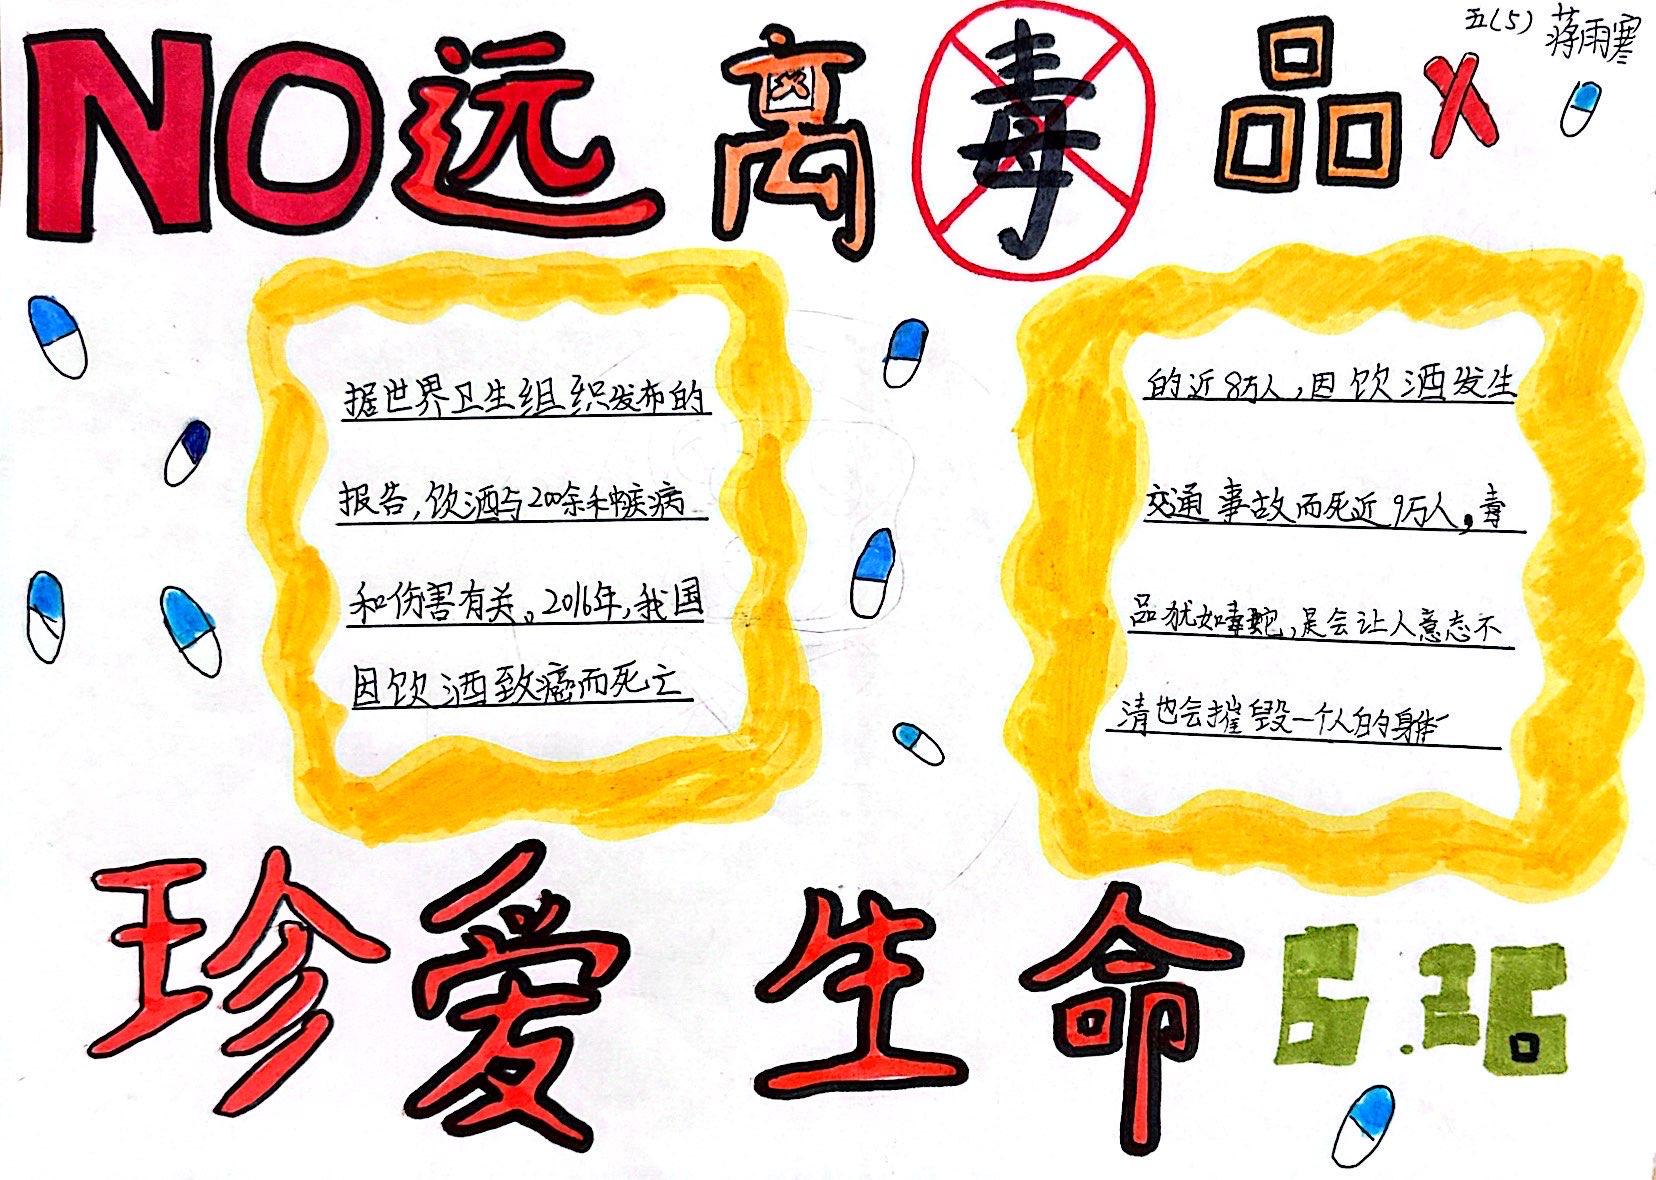 五(5) 蒋雨寒
NO远离毒品X
据世界卫生组织发布的
报告,饮酒与200余种疾病
和伤害有关。2016年,我国
因饮酒致癌而死亡
的近8万人,因饮酒发生
交通事故而死近9万人,毒
品犹如毒蛇,是会让人意态不
清也会摧毁一个人的身体
珍爱生命 6.26